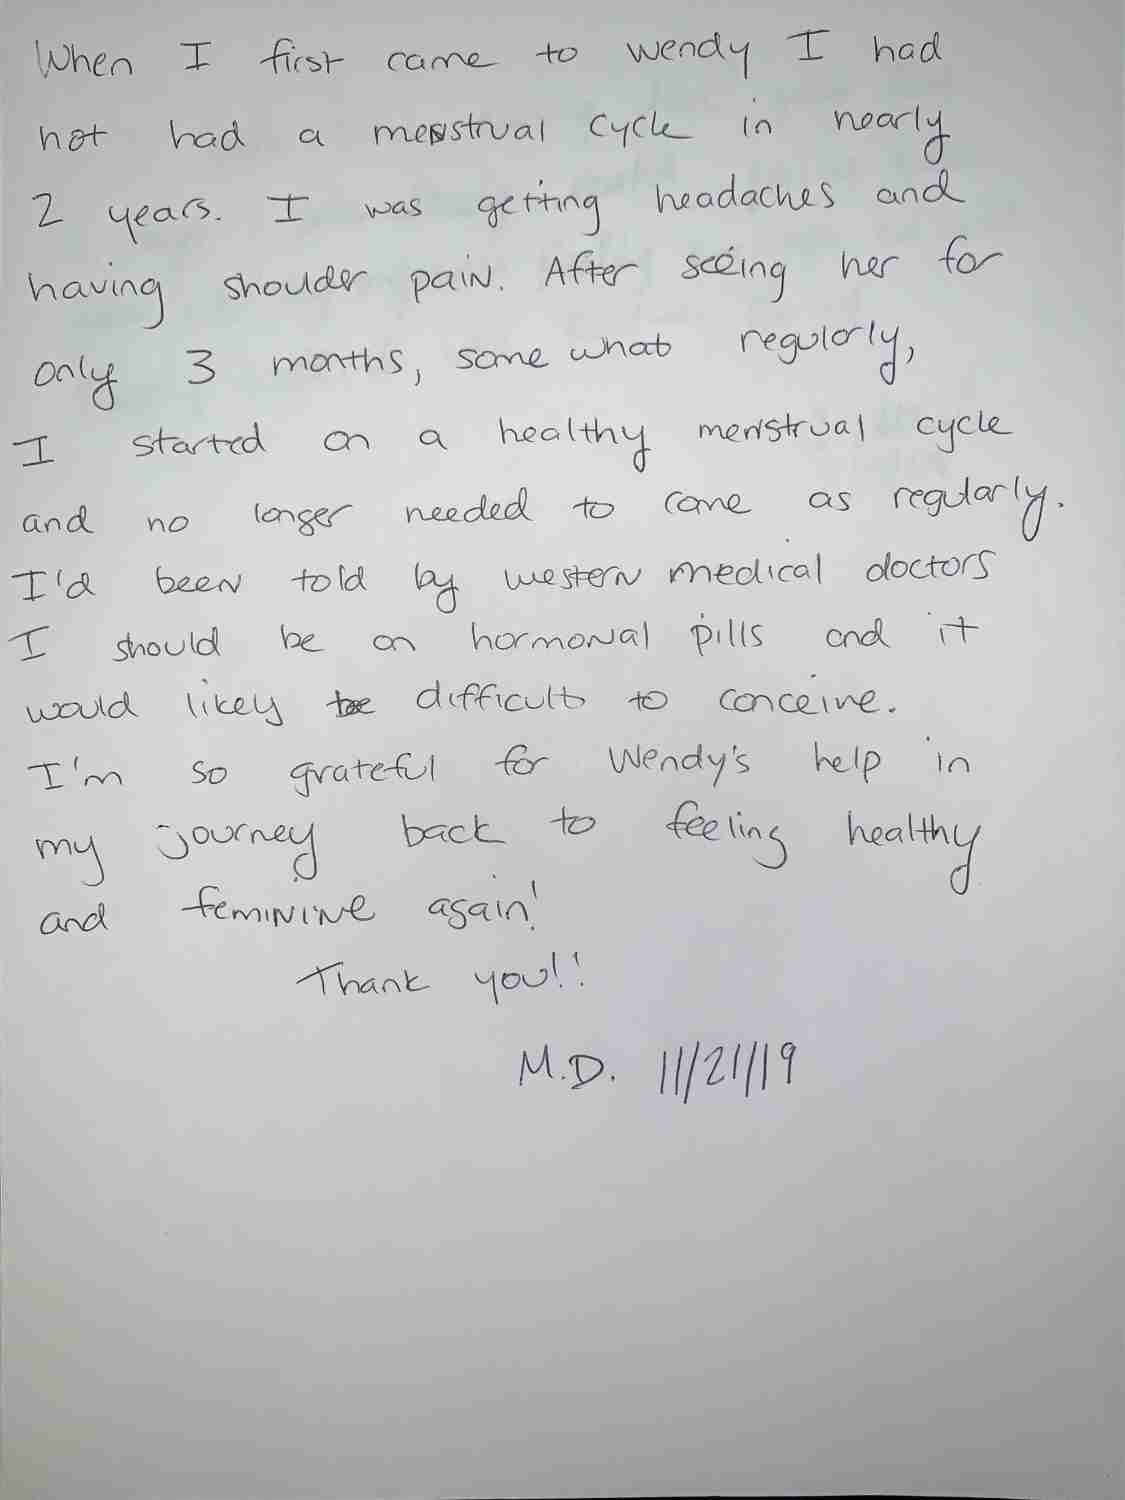 When I first came to Wendy I had
not had a menstrual cycle in nearly
2 years. I was getting headaches and
having shoulder pain. After seeing her for
only 3 months, some what regularly,
I started on a healthy menstrual cycle
and no longer needed to come as regularly.
I'd been told by western medical doctors
I should be on hormonal pills and it
would likely be difficult to conceive.
I'm so grateful for Wendy's help in
my journey back to feeling healthy
and feminine again!
Thank you!!
M.D. 11/21/19